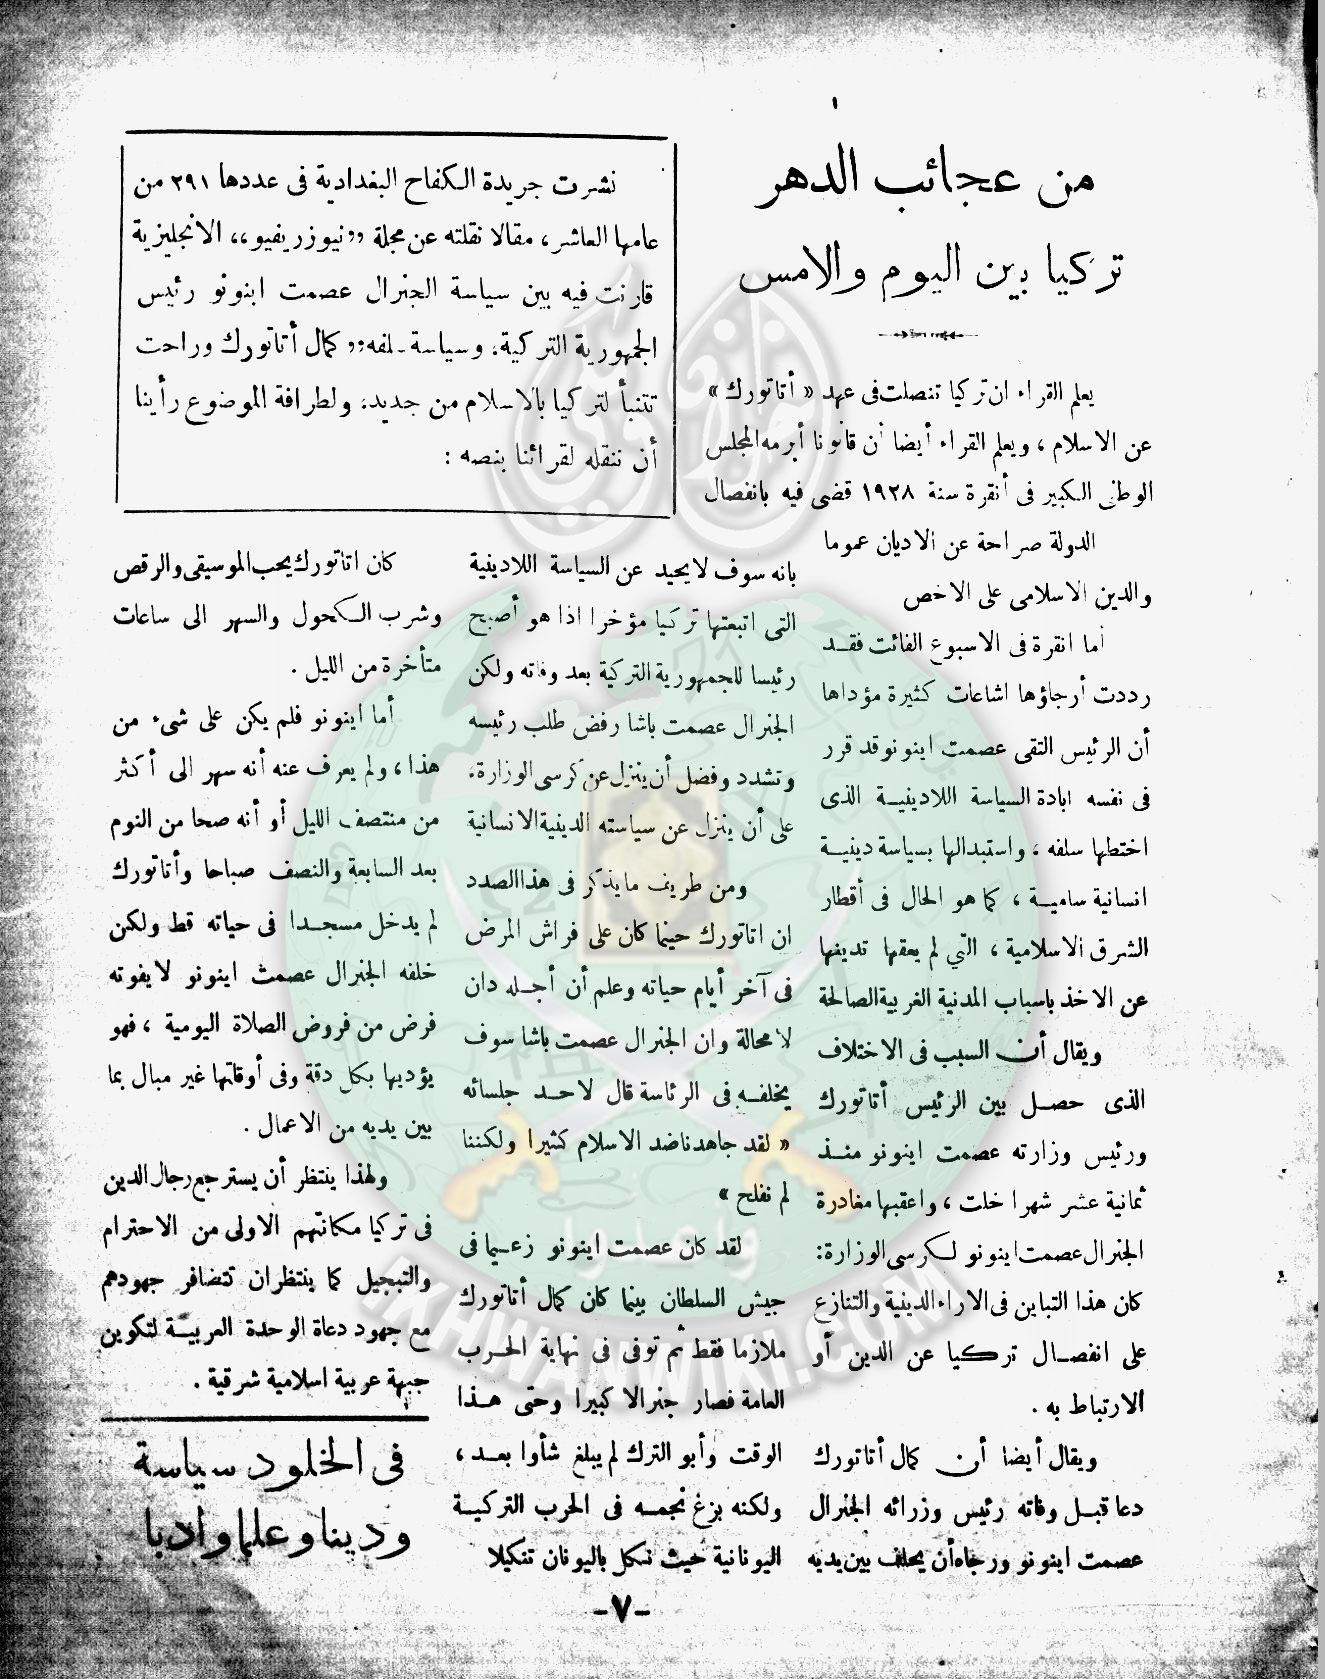 من عجائب الدهر
تركيا بين اليوم والامس
نشرت جريدة الكفاح البغدادية فى عددها ٢٩١ من
عامها العاشر، مقالا نقلته عن مجلة «نيوزريفيو» الانجليزية
قارنت فيه بين سياسة الجنرال عصمت اينونو رئيس
الجمهورية التركية، وسياسة سلفه «كمال أتاتورك وراحت
تتنبأ لتركيا بالاسلام من جديد، ولطرافة الموضوع رأينا
أن ننقله لقرائنا بنصه :
يعلم القراء ان تركيا تنصلت فى عهد « أتاتورك »
عن الاسلام ، ويعلم القراء أيضا أن قانونا أبرمه المجلس
الوطنى الكبير فى أنقرة سنة ١٩٢٨ قضى فيه بانفصال
الدولة صراحة عن الاديان عموما
والدين الاسلامى على الاخص
أما انقرة فى الاسبوع الفائت فقد
رددت أرجاؤها اشاعات كثيرة مؤداها
أن الرئيس التقى عصمت اينونو قد قرر
فى نفسه ابادة السياسة اللادينية الذى
اختطها سلفه ، واستبدالها بسياسة دينية
انسانية سامية ، كما هو الحال فى أقطار
الشرق الاسلامية ، التي لم يعقها تدينها
عن الاخذ باسباب المدنية الغربية الصالحة
ويقال أن السبب فى الاختلاف
الذى حصل بين الرئيس أتاتورك
ورئيس وزارته عصمت اينونو منذ
ثمانية عشر شهرا خلت ، واعقبها مغادرة
الجنرال عصمت اينونو لكرسى الوزارة :
كان هذا التباين فى الاراء الدينية والتنازع
على انفصال تركيا عن الدين أو
الارتباط به .
ويقال أيضا أن كمال أتاتورك
دعا قبل وفاته رئيس وزرائه الجنرال
عصمت اينونو ورجاه أن يحلف بين يديه
بانه سوف لا يحيد عن السياسة اللادينية
التى اتبعتها تركيا مؤخرا اذا هو أصبح
رئيسا للجمهورية التركية بعد وفاته ولكن
الجنرال عصمت باشا رفض طلب رئيسه
وتشدد وفضل أن ينزل عن كرسى الوزارة،
على أن ينزل عن سياسته الدينية الانسانية
ومن طريف ما يذكر فى هذا الصدد
ان اتاتورك حينما كان على فراش المرض
فى آخر أيام حياته وعلم أن أجله دان
لا محالة وان الجنرال عصمت باشا سوف
يخلفه فى الرئاسة قال لاحد جلسائه
« لقد جاهدنا ضد الاسلام كثيرا ولكننا
لم نفلح »
لقد كان عصمت اينونو زعيما فى
جيش السلطان بينما كان كمال أتاتورك
ملازما فقط ثم توفى فى نهاية الحرب
العامة فصار جنرالا كبيرا وحتى هذا
الوقت وأبو الترك لم يبلغ شأوا بعد ،
ولكنه بزغ نجمه فى الحرب التركية
اليونانية حيث نكل باليونان تنكيلا
كان اتاتورك يحب الموسيقى والرقص
وشرب الكحول والسهر الى ساعات
متأخرة من الليل .
أما اينونو فلم يكن على شىء من
هذا ، ولم يعرف عنه أنه سهر الى أكثر
من منتصف الليل أو أنه صحا من النوم
بعد السابعة والنصف صباحا وأتاتورك
لم يدخل مسجدا فى حياته قط ولكن
خلفه الجنرال عصمت اينونو لا يفوته
فرض من فروض الصلاة اليومية ، فهو
يؤديها بكل دقة وفى أوقاتها غير مبال بما
بين يديه من الاعمال .
ولهذا ينتظر أن يسترجع رجال الدين
فى تركيا مكانتهم الاولى من الاحترام
والتبجيل كما ينتظران تتضافر جهودهم
مع جهود دعاة الوحدة العربية لتكوين
جبهة عربية اسلامية شرقية .
فى الخلود سياسة
ودينا وعلما وادبا
-٧-
وأعدوا
IKHWANWIKI.COM